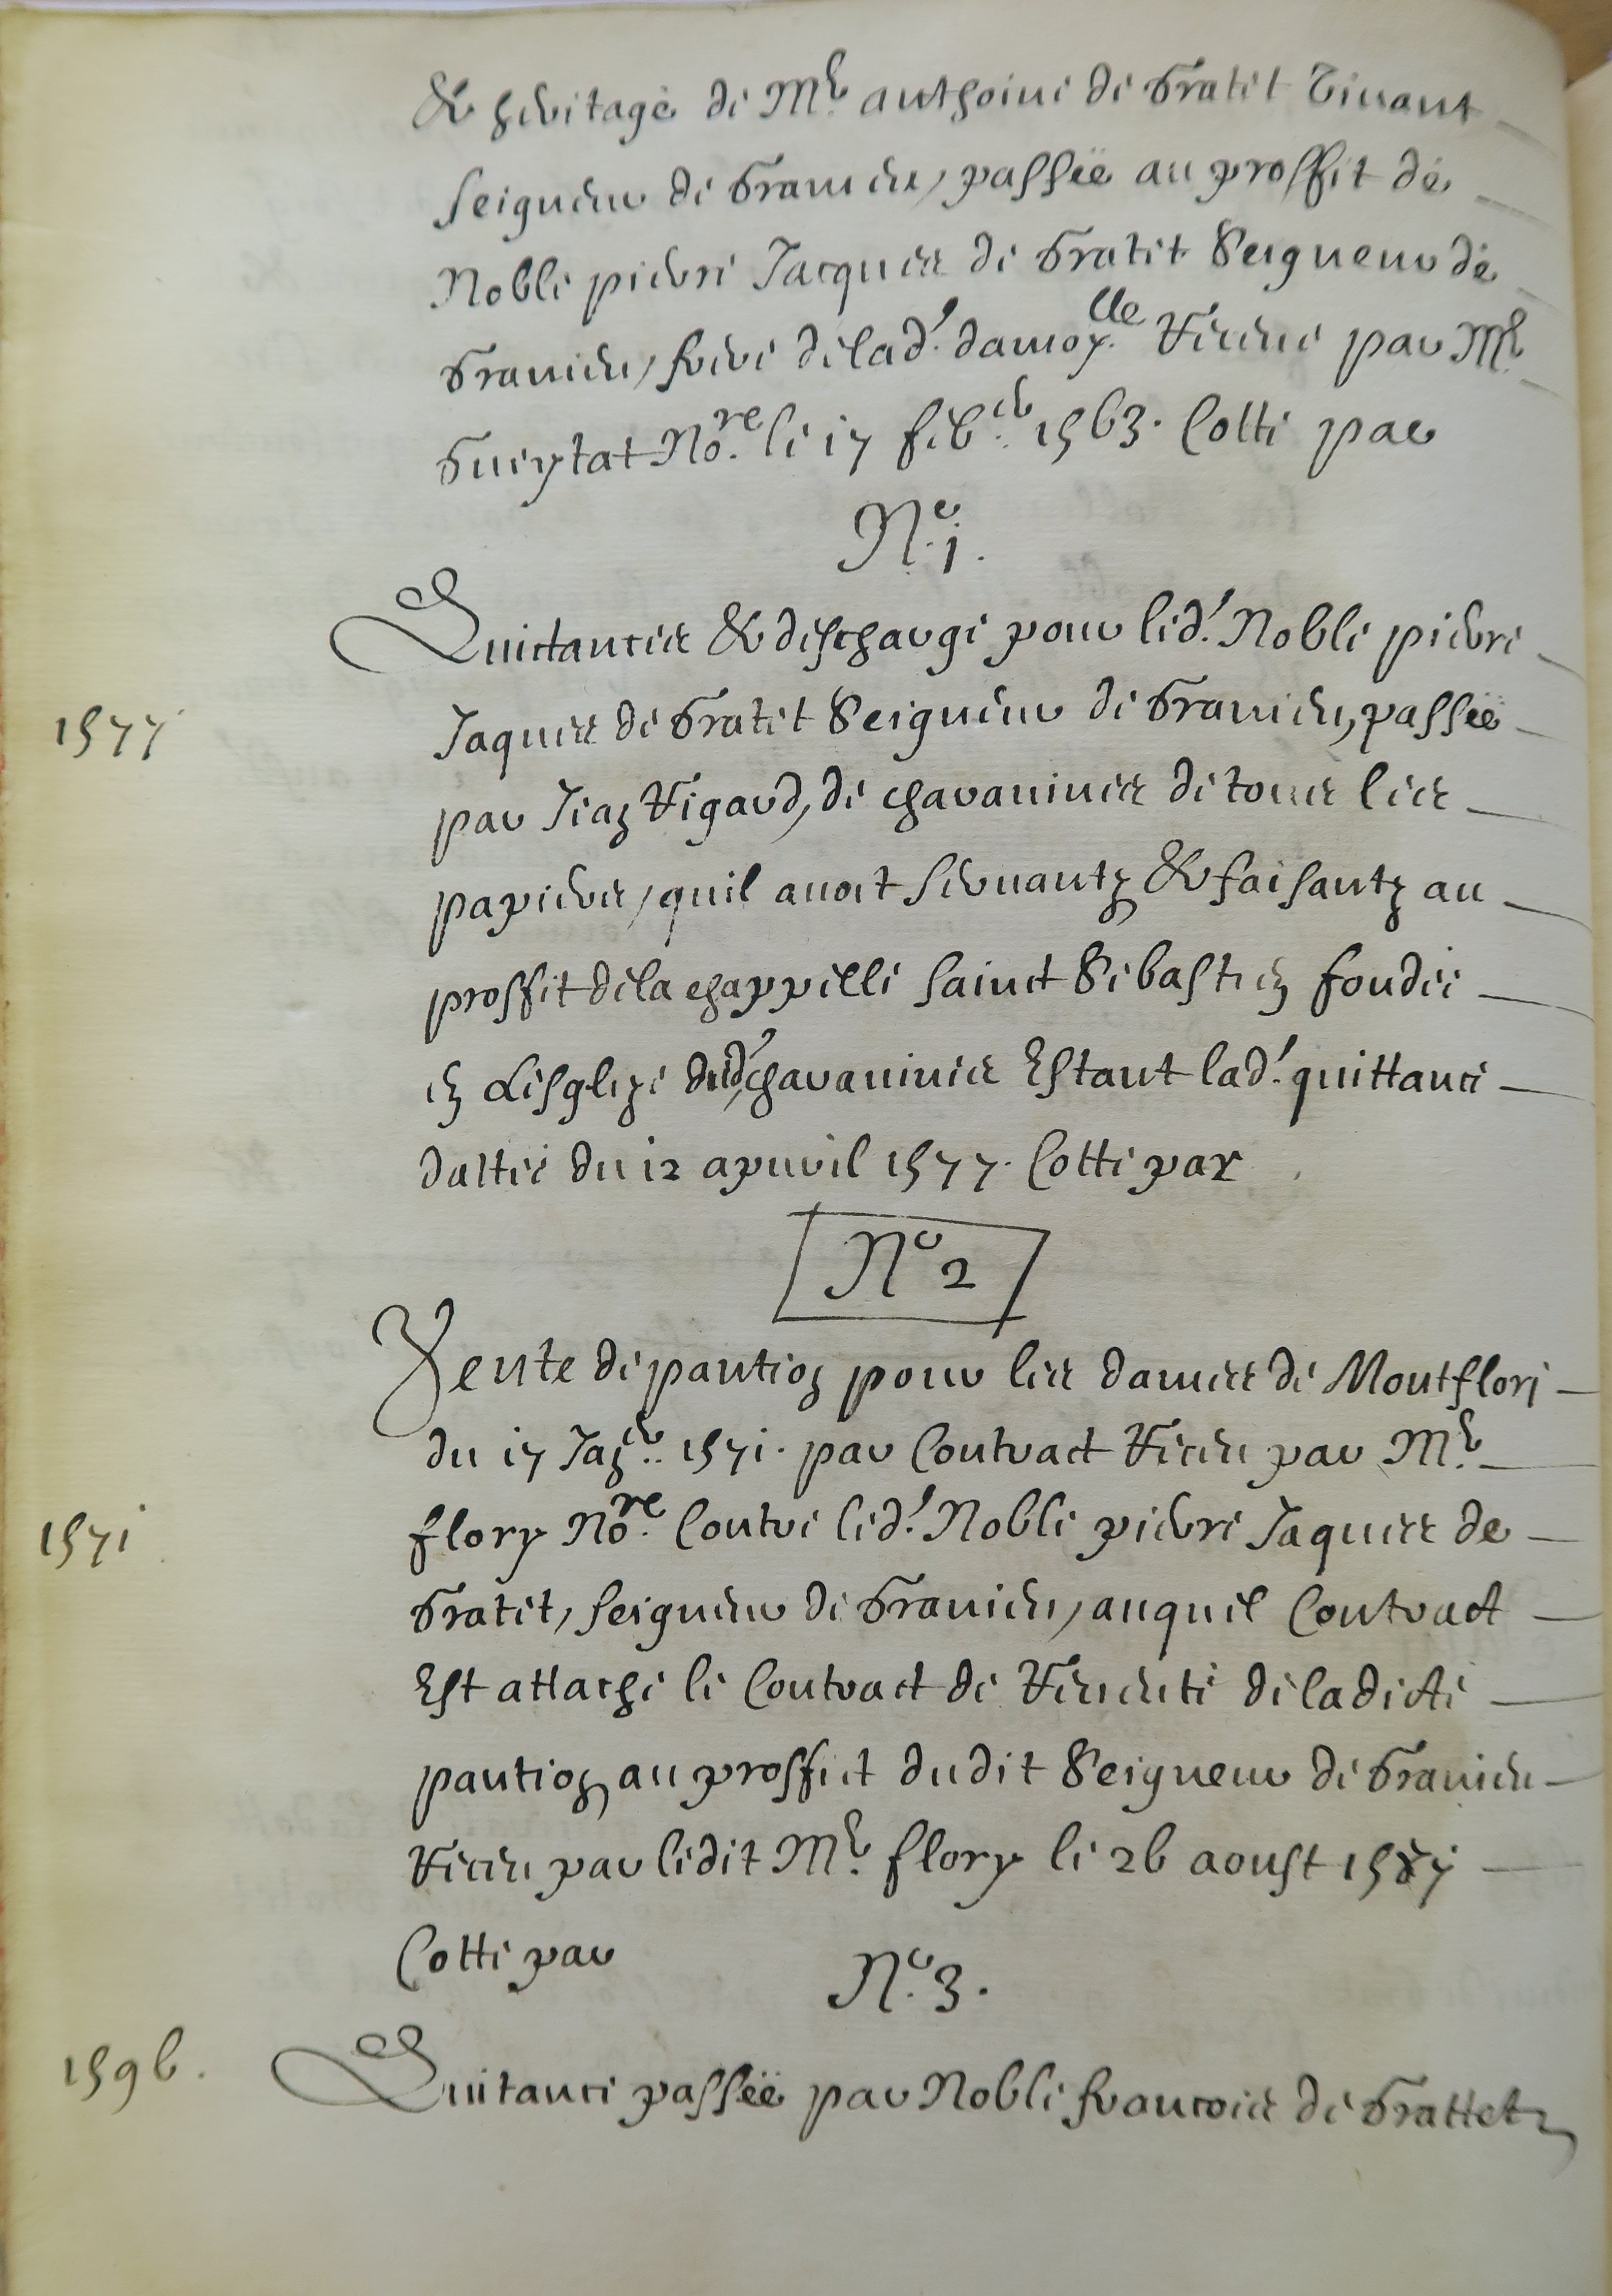 & heritage de Mr. Anthoine de Gratet vivant
seigneur de Granieu, passée au proffit de
Noble pierre Jacques de Gratet Seigneur de
Granieu, frere de lad. damoy.lle Receue par Me.
Gueytat No.re le 17 feb.er 1563. Cotté par
No. 1.
Quittances & descharge pour led. Noble pierre
1577
Jaques de Gratet Seigneur de Granieu, passée
par Jean Rigaud, de chavannes de tous les
papiers, quil avoit servantz & faisantz au
proffit de la chappelle sainct Sebastien fondée
en Lesglize dud. chavannes Estant lad. quittance
dattée du 12 apuril 1577. Cotté par
No 2
Vente de pantion pour les dames de Montflori
du 17 Jan.er 1571. par Contract Receu par Me.
1571
flory No.re Contre led. Noble pierre Jaques de
Gratet, seigneur de Granieu, auquel Contract
Est attaché le Contract de Revente de la dicte
pantion au proffict dudit Seigneur de Granieu
Receu par ledit Me. flory le 26 aoust 1587
Cotté par
No. 3.
1596.
Quitance passée par Noble francois de Grattet